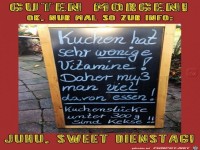 GUTEN MORGEN!
OK, NUR MAL SO ZUR INFO:
Kuchen hat
sehr wenige
Vitamine!
Daher muß
man viel
davon essen!
Kuchenstücke
unter 300g
sind Kekse!!
JUHU, SWEET DIENSTAG!